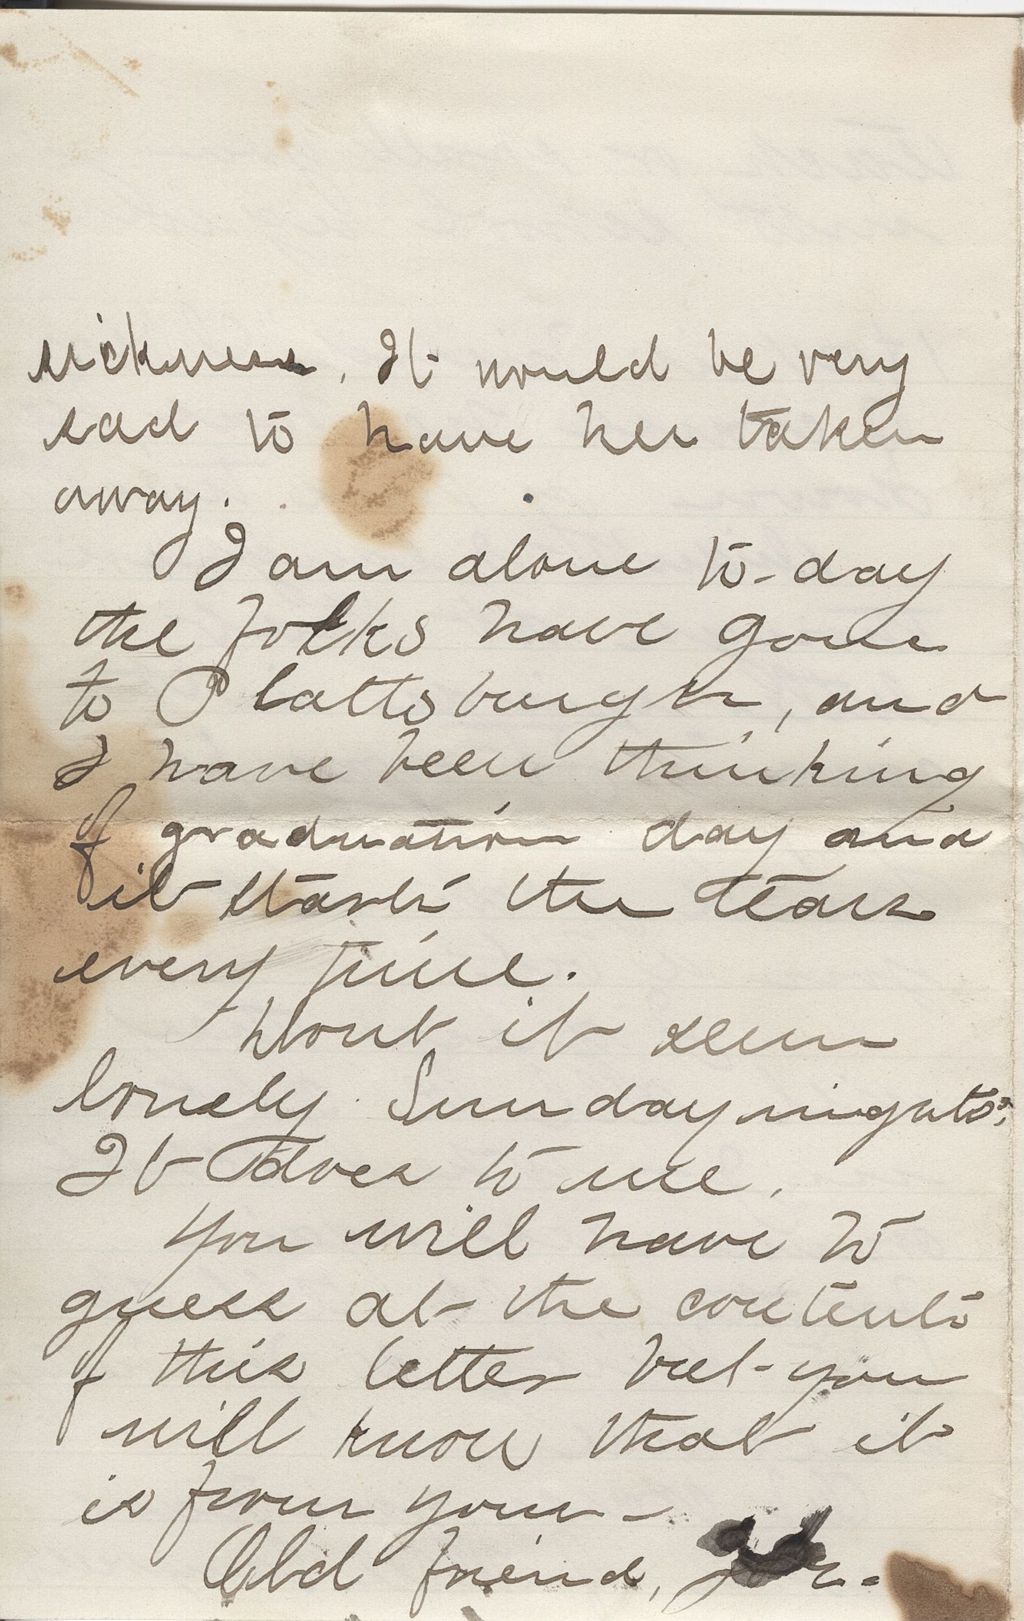 sickness. It would be very
sad to have her taken
away.
I am alone to-day
the folks have gone
to Plattsburgh, and
I have been thinking
of graduation day and
it starts the tears
every time.
Dont it seem
lonely Sunday nights?
It does to me.
You will have to
guess at the contents
of this letter but you
will know that it
is from your
Old friend,